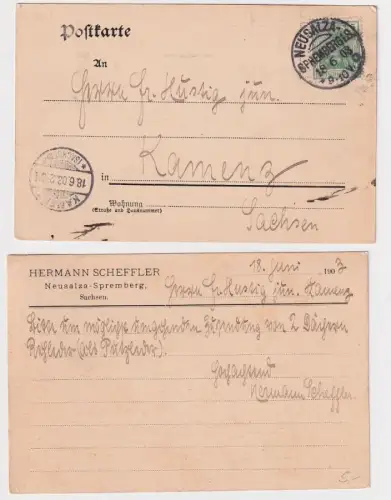 Postkarte
NEUSALZA-
SPREMBERG
18 6 03
An
Herrn Fr. Hustig jun.
KAMENZ
18.6.03
in Kamenz
Wohnung
(Straße und Hausnummer)
Sachsen
HERMANN SCHEFFLER
Neusalza-Spremberg,
Sachsen.
18. Juni 1903
Herrn Fr. Hustig jun. Kamenz
Bitte um möglichst umgehenden Zusendung von 2 Dächern
Rehleder (als Putzleder).
Hochachtend
Hermann Scheffler.